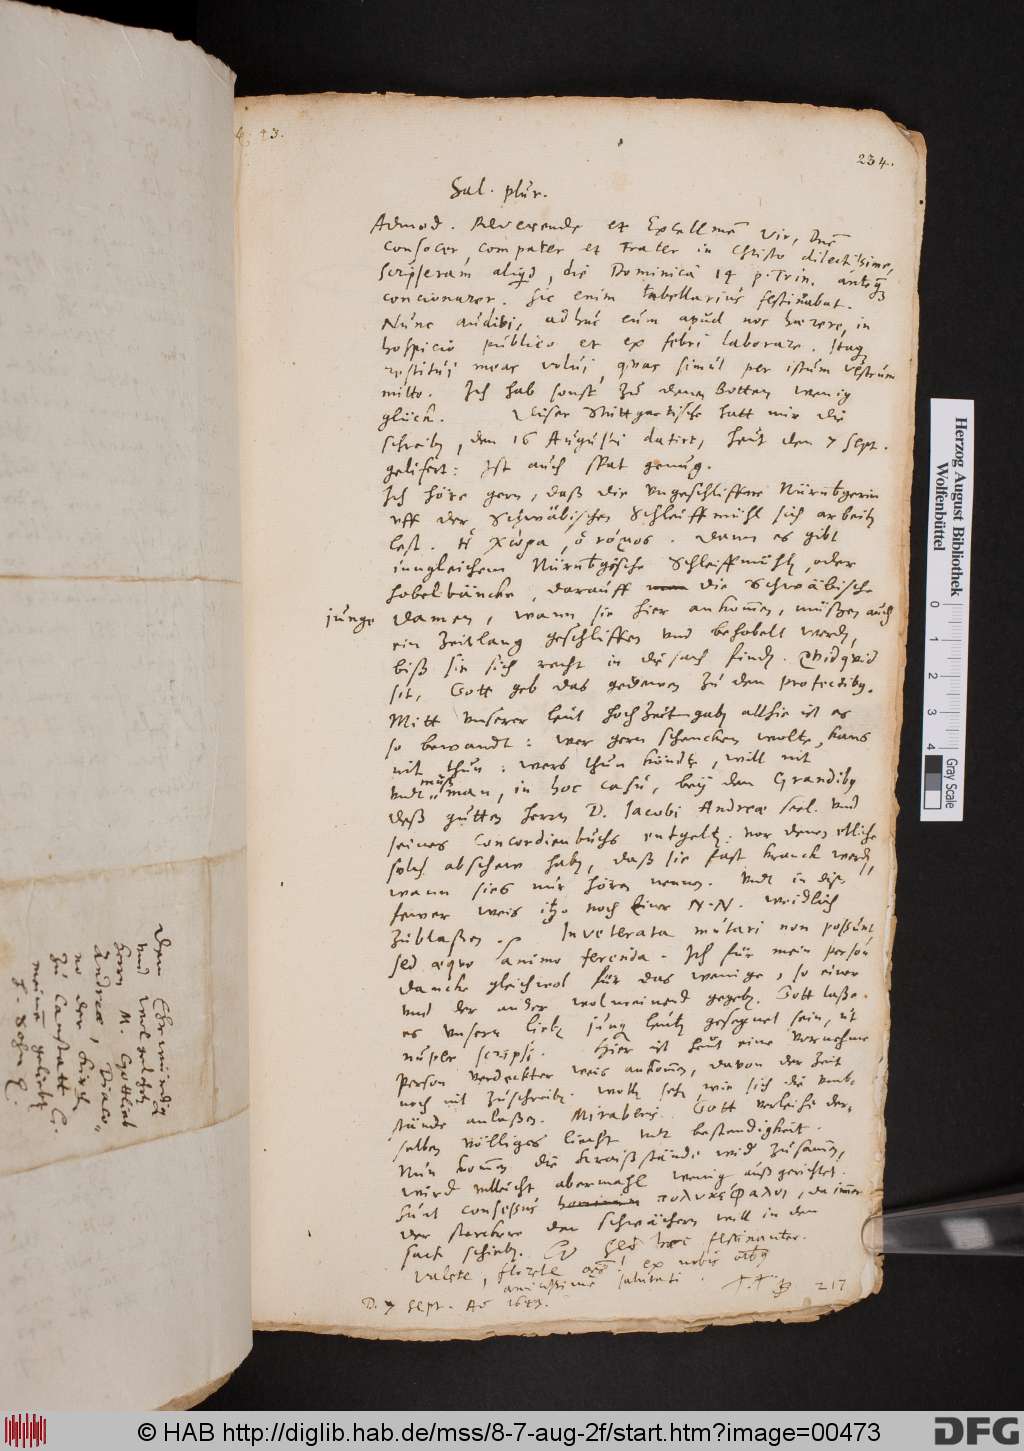 234.
Sal. plur.
Admod. Reverende et Excellme Vir, Dne
Consocer, compater et frater in Christo dilectissime,
Scripseram aliqd, die Dominica 14 p. Trin. anteq
concionarer. Sic enim tabellarius festinabat.
Nunc audivi, adhuc eum apud nos haerere, in
hospicio publico et ex febri laborare. Itaq
restitui meas volui, quas simul per istum vestrum
mitto. Ich hab sonst zu denen Botten wenig
glück. Unser Stuttgartische hatt mir die
schreiben, den 16 Augusti datirt, heut den 7 Sept.
gelifert: Ist auch spat genug.
Ich höre gern, daß die ungeschliffne Nürnbgerin
uff der Schwäbischen Schleiffmühl sich arbeiten
lest. ἢ χώρα, ὁ νόμος. Dann es gibt
inngleichem Nürnbgische Schleiffmühlen, oder
hobelbäncke, darauff die Schwäbische
junge Damen, wann sie hier ankomen, müßen auch
ein Zeitlang geschliffen und behobelt werden,
biß sie sich recht in die sach finden. Quidquid
sit, Gott geb das gedeyen zu den profectibq.
Mitt unserer leut hochzeitgaben allhie ist es
so bewandt: wer gern schencken wolte, kans
nit thun: wers thun köndte, will nit
undt muß man, in hoc casu, bey den Grandibq
deß guten herrn D. Jacobi Andreae seel. und
seines Concordienbuchs entgelten: vor denen etliche
solch abschew haben, daß sie fast kranck werden,
wann sies nur hören nennen. Undt in diß
fewer weis itzo noch Einer N.N. weidlich
zublaßen. Inveterata mutari non possunt
sed aequo animo ferenda. Ich für mein person
dancke gleichwol für das wenige, so einer
und der ander wolmeinend gegeben. Gott laße
es unsern lieben jungen leuten gesegnet sein, ut
nuper scripsi. Hier ist heut eine Vornehme
Person verdeckter weis ankomen, davon der Zeit
noch nit zuschreiben. wollen sehen, wie sich die umb-
stände anlaßen. Mirabers. Gott verleihe der-
selben völliges liecht undt bestendigkeit.
Nun komen die Kraißstände wid zusamen,
würd villeicht abermahl wenig außgerichtet.
Sunt consessus πολυκέφαλοι, da imer
der stärckere den schwächern will in den
sack schieben. Sed haec festinanter.
Valete, florete oes! ex nobis oibq
amicissime salutati.
D. 7 Sept. Ao 1643.
217
Dem Ehrwürdig
und wolgelehrten
Herrn M. Gottlieb
Andreae, Diaco-
no der Kirch
zu Canstatt &.
meinem geliebten
H. Sohn &.
Herzog August Bibliothek
Wolfenbüttel
0 1 2 3 4
Gray Scale
© HAB http://diglib.hab.de/mss/8-7-aug-2f/start.htm?image=00473
DFG